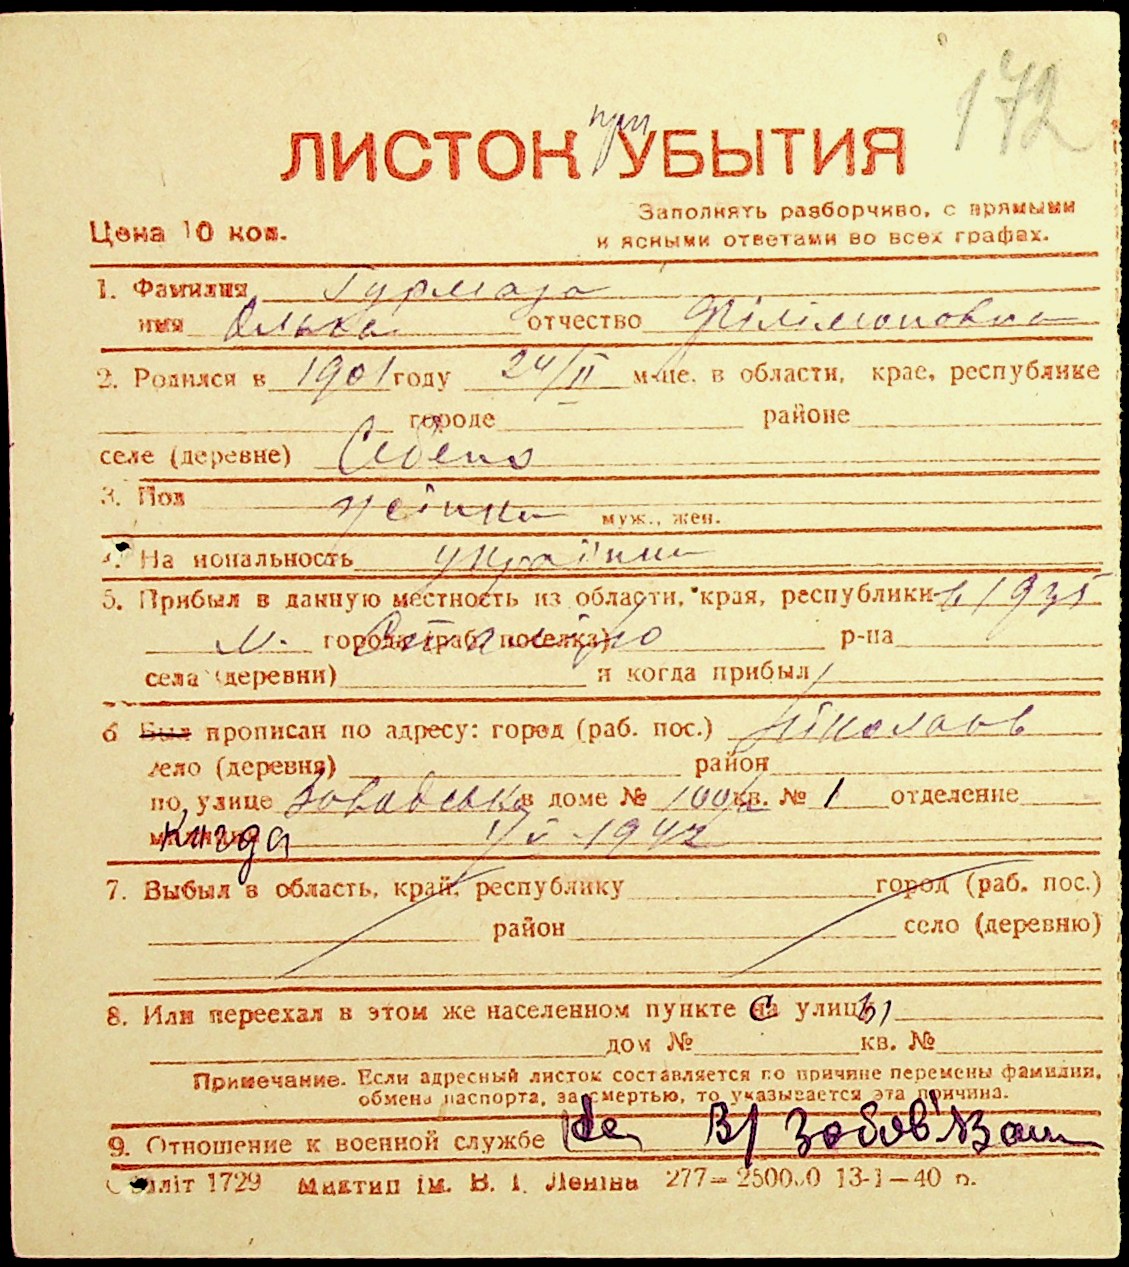 172
ЛИСТОК при УБЫТИЯ
Цена 10 коп.
Заполнять разборчиво, с прямыми
и ясными ответами во всех графах.
1. Фамилия
имя Ольга отчество Філімоновна
2. Родился в 1901 году 24/II м-це, в области, крае, республике
городе районе
селе (деревне)
3. Пол жінка муж., жен.
4. Национальность українка
5. Прибыл в данную местность из области, края, республики в 1935
м. города (раб. поселка) р-на
села (деревни) и когда прибыл
6 Был прописан по адресу: город (раб. пос.) Ніколаов
село (деревня) район
по улице в доме № 100а кв. № 1 отделение
милиции Когда 1/V-1942
7. Выбыл в область, край, республику город (раб. пос.)
район село (деревню)
8. Или переехал в этом же населенном пункте с на улицы
дом № кв. №
Примечание. Если адресный листок составляется по причине перемены фамилии,
обмена паспорта, за смертью, то указывается эта причина.
9. Отношение к военной службе Не В/зобов'язан
літ 1729 Миктип ім. В. І. Леніна 277—250000 13-1—40 р.